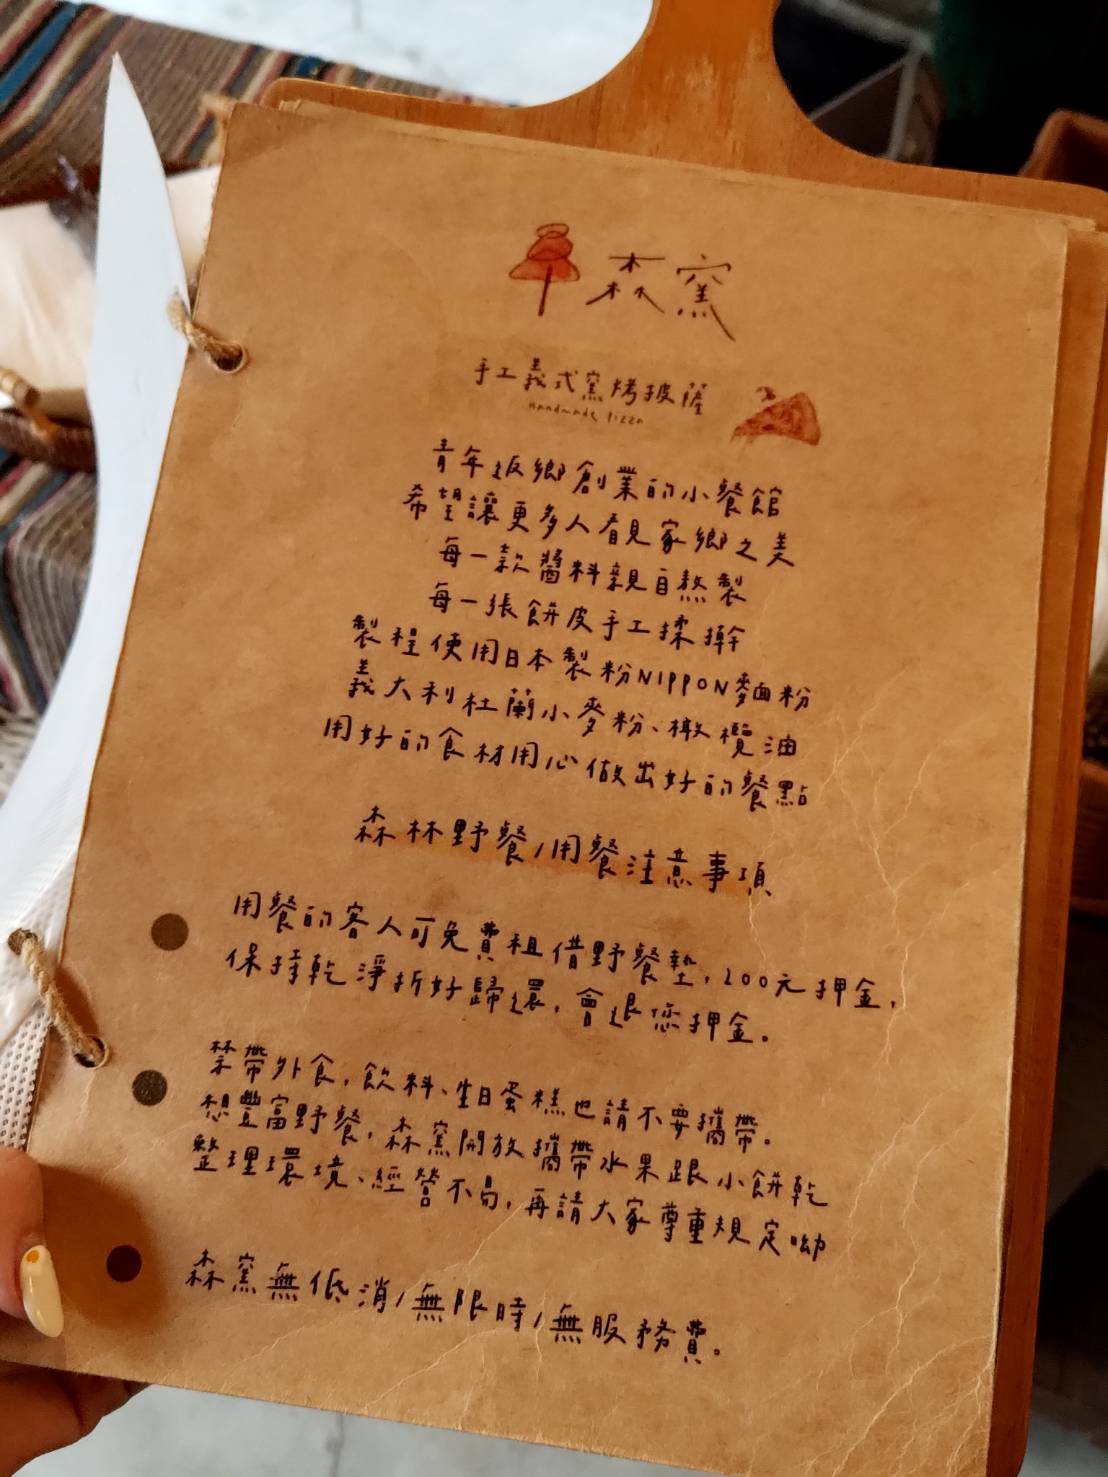 森窯
手工義式窯烤披薩
Handmade Pizza
青年返鄉創業的小餐館
希望讓更多人看見家鄉之美
每一款醬料親自熬製
每一張餅皮手工揉擀
製程使用日本製粉NIPPON麵粉
義大利杜蘭小麥粉、橄欖油
用好的食材用心做出好的餐點
森林野餐/用餐注意事項
用餐的客人可免費租借野餐墊，200元押金，
保持乾淨折好歸還，會退您押金。
禁帶外食，飲料、生日蛋糕也請不要攜帶。
想豐富野餐，森窯開放攜帶水果跟小餅乾
整理環境、經營不易，再請大家尊重規定呦
森窯無低消/無限時/無服務費。